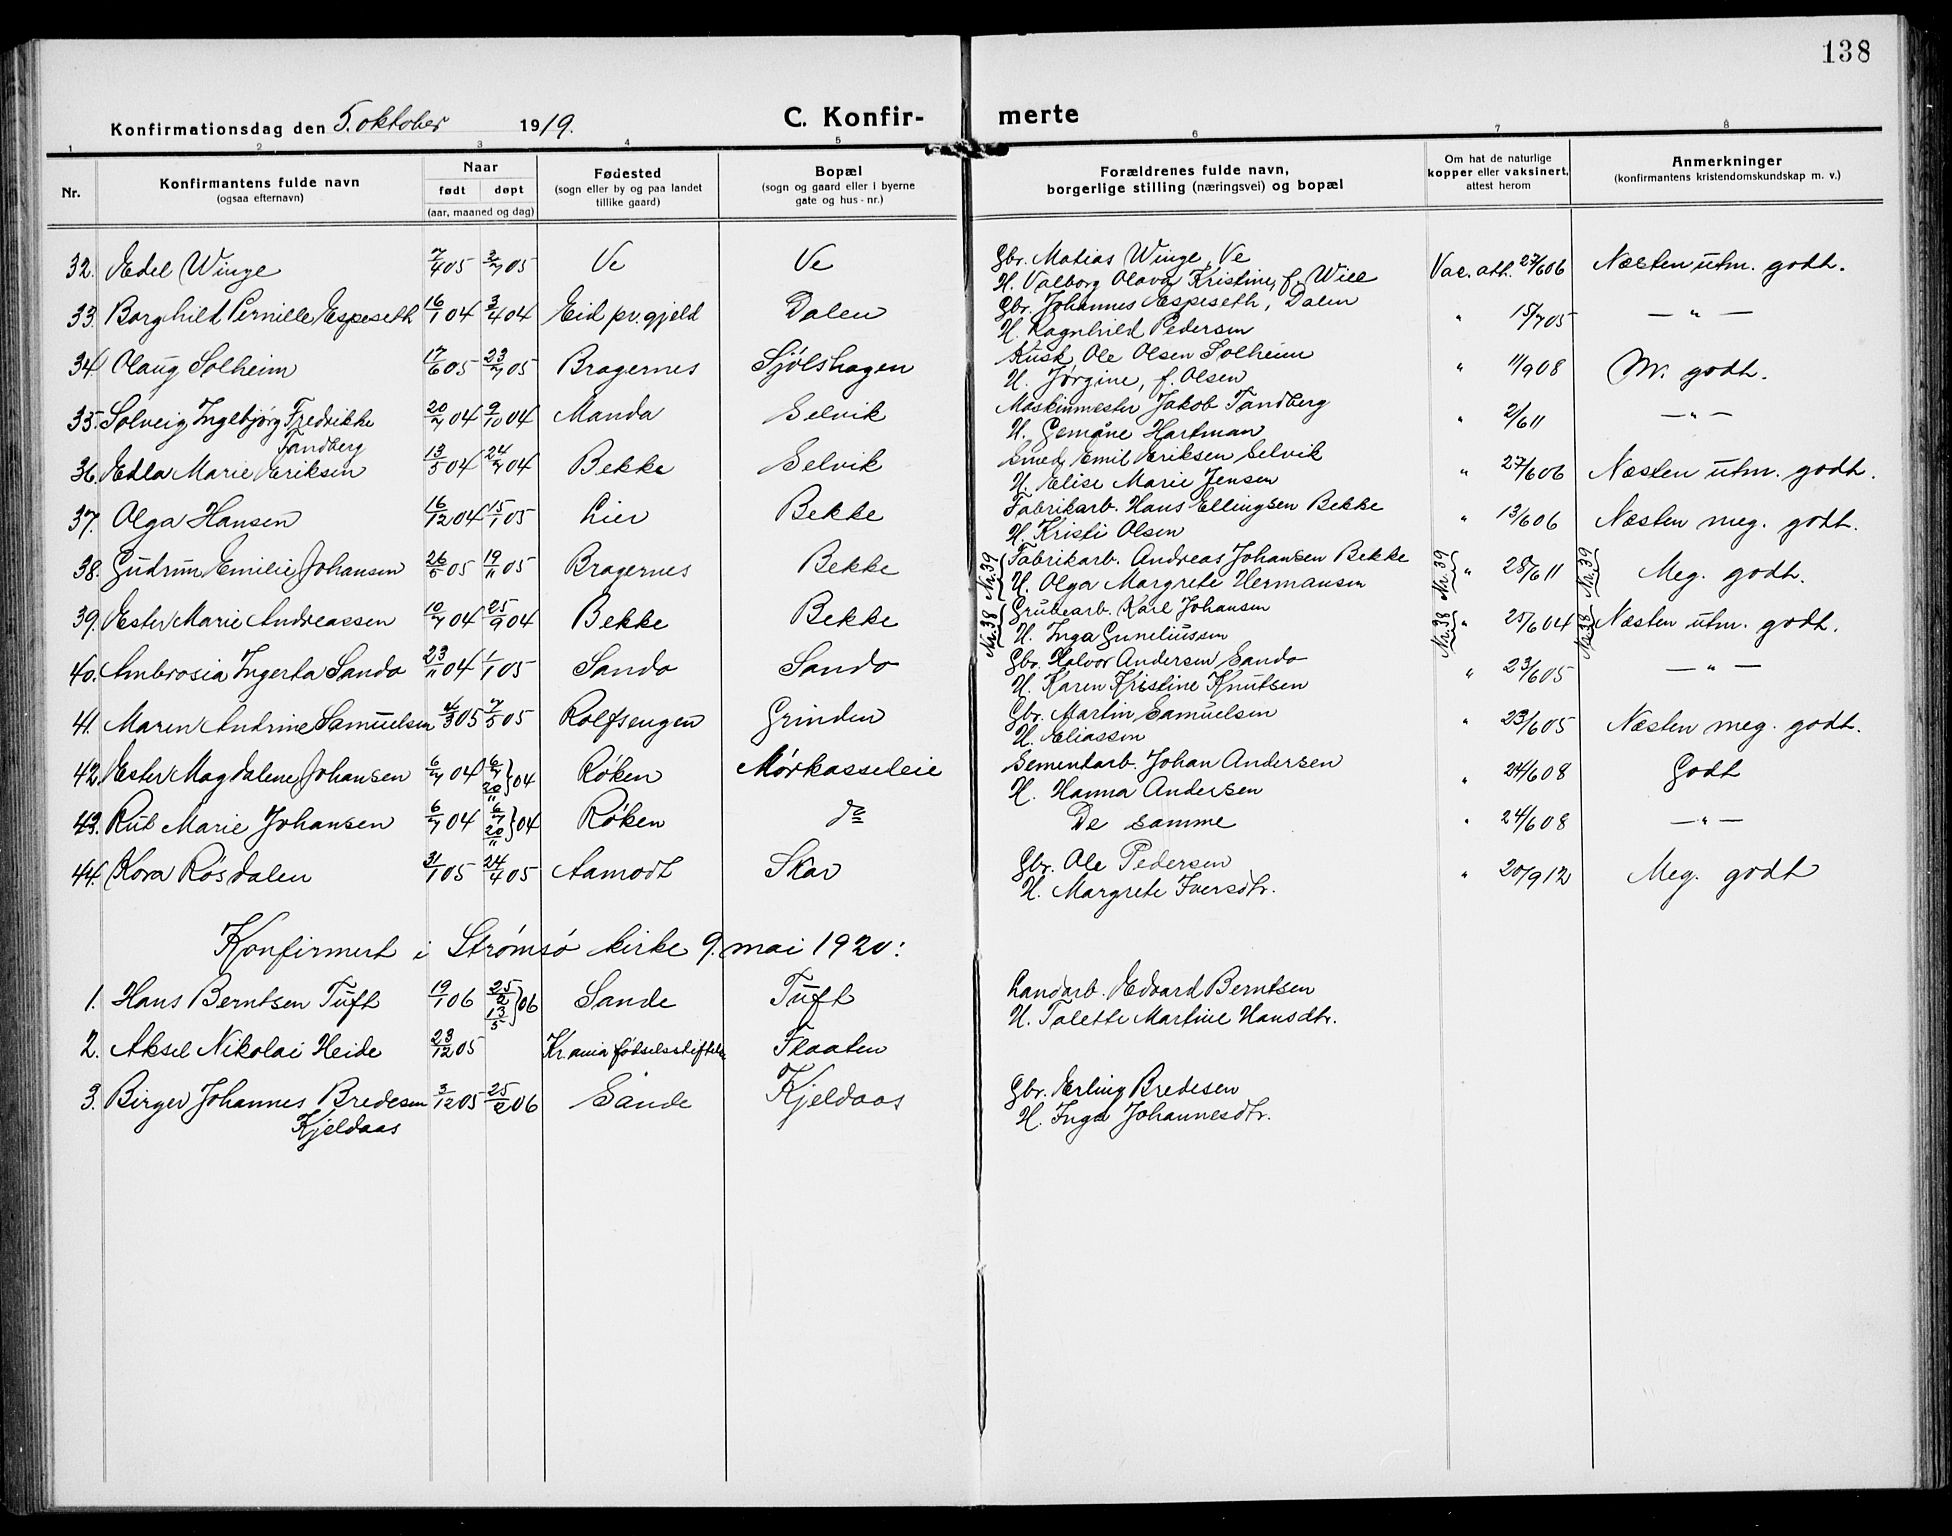 138
Konfirmationsdag den 5. oktober 1919. C. Konfir- merte
1 2 3 4 5 6 7 8
Nr. Konfirmantens fulde navn (ogsaa efternavn) Naar født døpt (aar, maaned og dag) Fødested (sogn eller by og paa landet tillike gaard) Bopæl (sogn og gaard eller i byerne gate og hus-nr.) Forældrenes fulde navn, borgerlige stilling (næringsvei) og bopæl Om hat de naturlige kopper eller vaksinert, attest herom Anmerkninger (konfirmantens kristendomskundskap m. v.)
32. Edel Winge 7/4 05 2/7 05 Ve Ve Gbr. Matias Winge, Ve Vac. att. 27/6 06 Næsten utm. godt.
H. Valborg Olava Kristine, f. Wiel
33. Borghild Pernille Espeseth 16/1 04 3/4 04 Eid pr.gjeld Dalen Gbr. Johannes Espeseth, Dalen " 15/7 05 — " —
H. Ragnhild Pedersen
34. Olaug Solheim 17/6 05 23/7 05 Bragernes Sjølshagen Kusk Ole Olsen Solheim " 11/9 08 M. godt.
H. Jørgine, f. Olsen
35. Solveig Ingebjørg Fredrikke 20/7 04 9/10 04 Manda Selvik Maskinmester Jakob Tandberg " 2/6 11 — " —
Tandberg H. Gemåne Hartman
36. Edla Marie Eriksen 13/5 04 24/7 04 Bekke Selvik Smed Emil Eriksen Selvik " 27/6 06 Næsten utm. godt.
H. Elise Marie Jensen
37. Olga Hansen 16/12 04 15/1 05 Lier Bekke Fabrikarb. Hans Ellingsen Bekke " 13/6 06 Næsten meg. godt.
H. Kristi Olsen
38. Gudrun Emilie Johansen 26/5 05 19/11 05 Bragernes Bekke Nr. 39 Fabrikarb. Andreas Johansen Bekke Nr. 39 " 28/6 11 Nr. 39 Meg. godt.
H. Olga Margrete Hermansen
39. Ester Marie Andreassen 10/7 04 25/9 04 Bekke Bekke Nr. 38 Grubearb. Karl Johansen Nr. 38 " 25/6 04 Nr. 38 Næsten utm. godt.
H. Inga Guneliussen
40. Ambrosia Ingerta Sando 23/11 04 1/1 05 Sando Sando Gbr. Halvor Andersen Sando " 23/6 05 — " —
H. Karen Kristine Knutsen
41. Maren Andrine Samuelsen 4/3 05 7/5 05 Rolfsengen Grinden Gbr. Martin Samuelsen " 23/6 05 Næsten meg. godt.
H. Eliassen
42. Ester Magdalene Johansen 6/7 04 6/7 20/11 } 04 Røken Mørkasseleie Sementarb. Johan Andersen " 24/6 08 Godt
H. Hanna Andersen
43. Rut Marie Johansen 6/7 04 6/7 20/11 } 04 Røken do De samme " 24/6 08 — " —
44. Kora Røsdalen 31/1 05 24/4 05 Aamodt Skar Gbr. Ole Pedersen " 20/9 12 Meg. godt
H. Margrete Iversdtr.
Konfirmert i Strømsø kirke 9. mai 1920:
1. Hans Berntsen Tuft 19/1 06 25/2 13/5 } 06 Sande Tuft Landarb. Edvard Berntsen
H. Talette Martine Hansdtr.
2. Aksel Nikolai Heide 23/12 05 Kr.ania fødselsstiftelse Flaaten
3. Birger Johannes Bredesen 3/12 05 25/2 06 Sande Kjeldaas Gbr. Erling Bredesen
Kjeldaas H. Inga Johannesdtr.